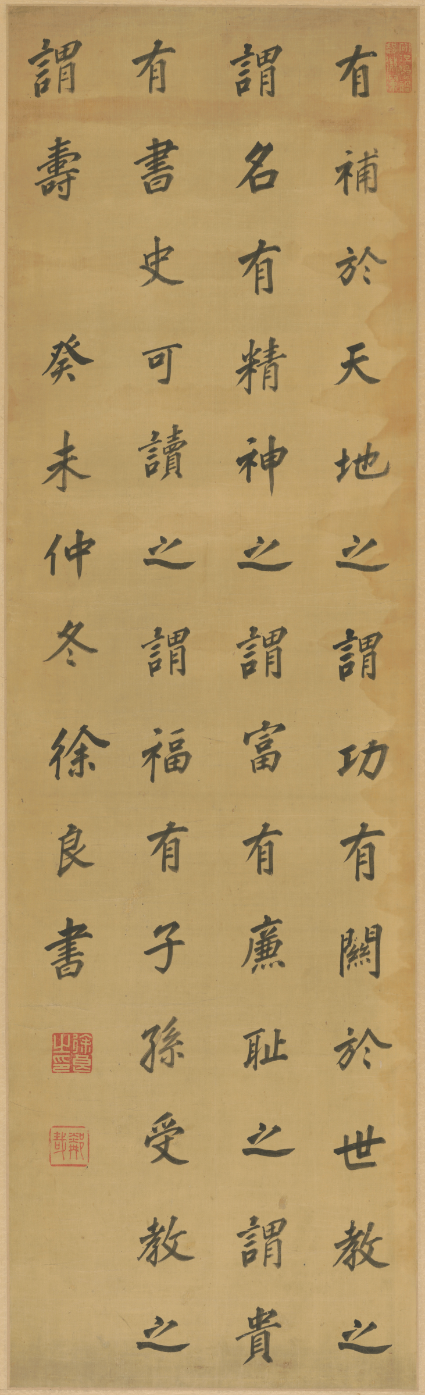 有補於天地之謂功有關於世教之
謂名有精神之謂富有廉恥之謂貴
有書史可讀之謂福有子孫受教之
謂壽 癸未仲冬徐良書
徐良之印